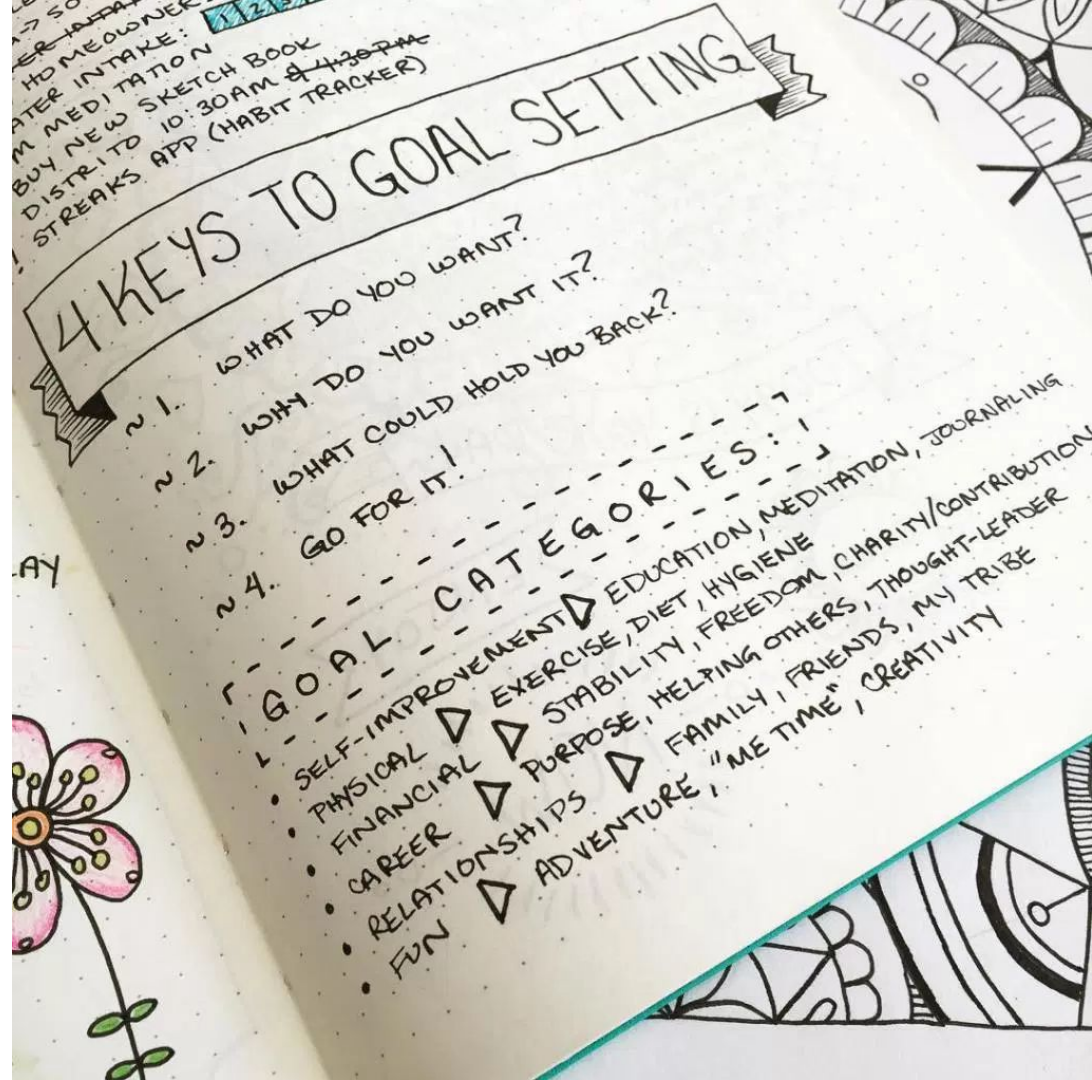 -> SO
HOMEOWNER
ATER INTAKE: 1 2 3
M MEDITATION
BUY NEW SKETCH BOOK
DISTRITO 10:30AM & 4:30PM
! STREAKS APP (HABIT TRACKER)
4 KEYS TO GOAL SETTING
~ 1. WHAT DO YOU WANT?
~ 2. WHY DO YOU WANT IT?
~ 3. WHAT COULD HOLD YOU BACK?
~ 4. GO FOR IT!
GOAL CATEGORIES:
• SELF-IMPROVEMENT ▷ EDUCATION, MEDITATION, JOURNALING
• PHYSICAL ▷ EXERCISE, DIET, HYGIENE
• FINANCIAL ▷ STABILITY, FREEDOM, CHARITY/CONTRIBUTION
• CAREER ▷ PURPOSE, HELPING OTHERS, THOUGHT-LEADER
• RELATIONSHIPS ▷ FAMILY, FRIENDS, MY TRIBE
• FUN ▷ ADVENTURE, "ME TIME", CREATIVITY
LAY